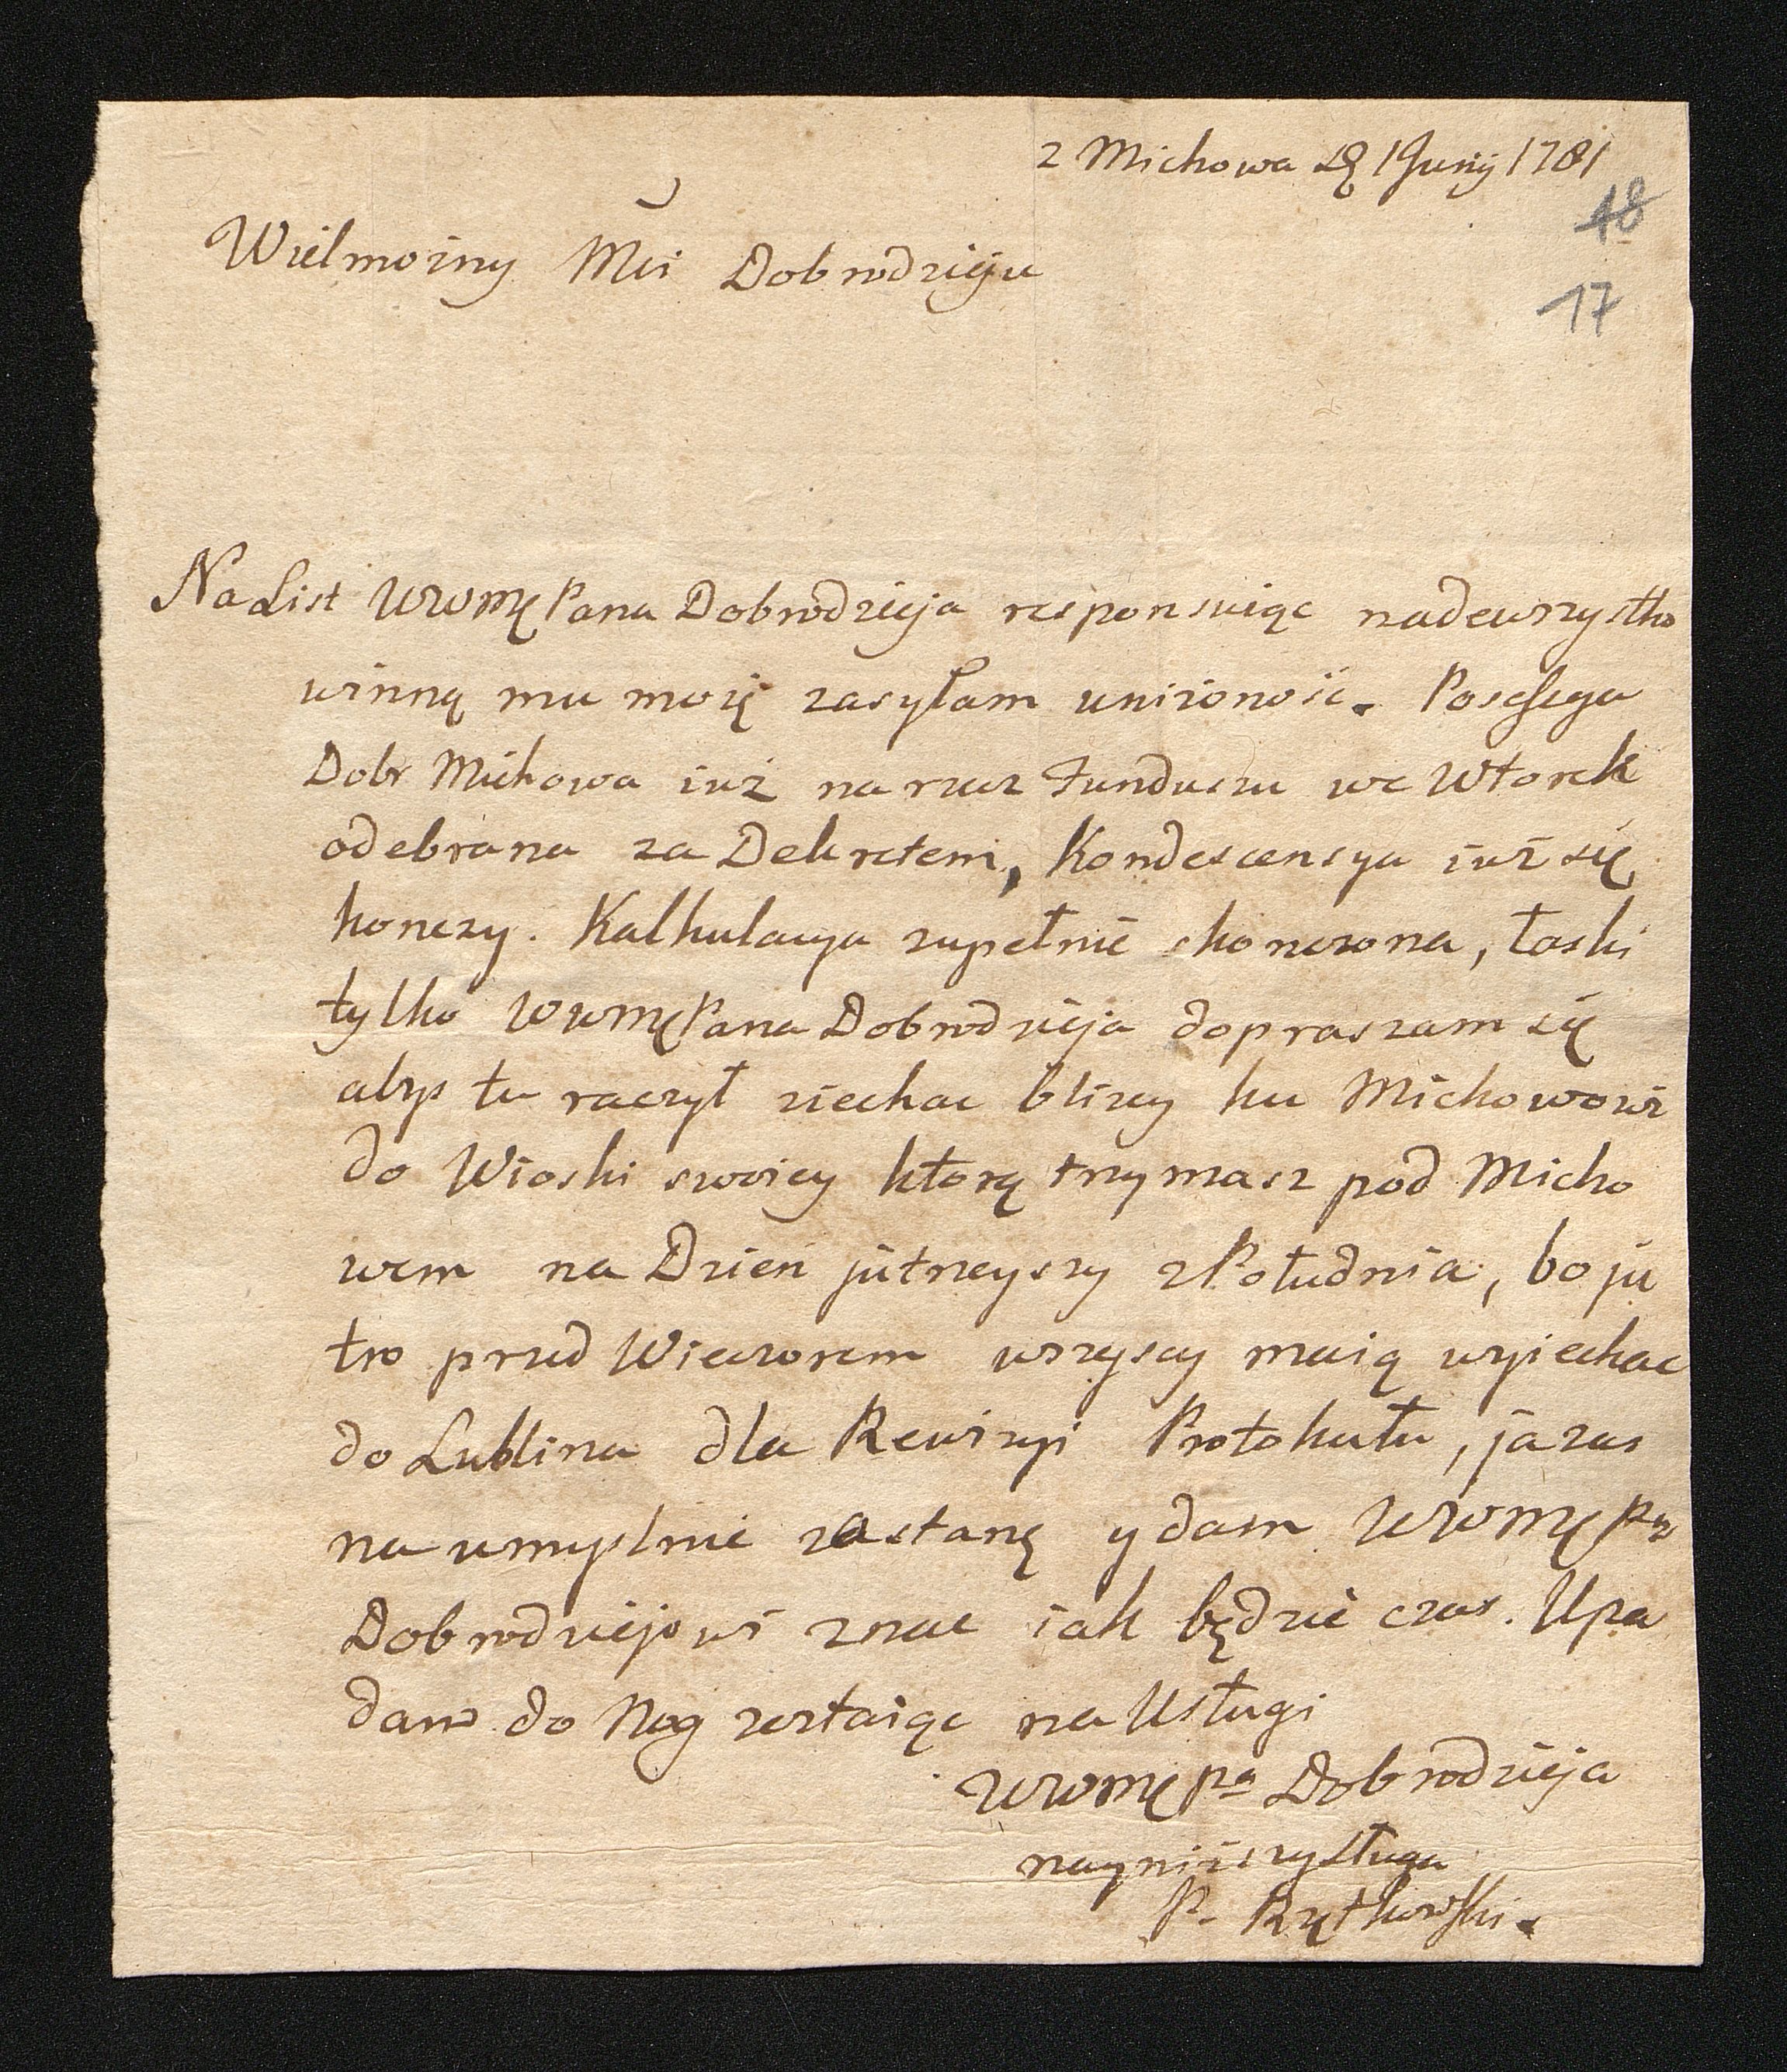 z Michowa 1781
48
17
Wielmożny Mci Dobrodzieju
Na List WWMę Pana Dobrodzieja responsuiąc nadewszystko
winną mu moię zasyłam unizonosc. Possessya
Dobr Michowa iuż na rzecz Funduszu we Wtorek
odebrana za Dekretem, Kondescensya iuż się
konczy. Kalkulacya zupełnie skonczona, łaski
tylko WWMę Pana Dobrodzieja dopraszam się
abys tu raczył ziechac blizey ku Michowowi
do Wioski swoiey ktorą trzymasz pod Micho
wem na Dzien jutrzeyszy z Południa, bo ju
tro przed Wieczorem wszyscy maią wyiechac
do Lublina dla Rewizyi Protokułu, ja zas
na umyslnie zostanę y dam WWMę Pa
Dobrodziejowi znac iak będzie czas. Upa
dam do Nog zostaiąc na Usługi
WWMę Pa Dobrodzieja
nayniższy sługa
P. Rętkowski.